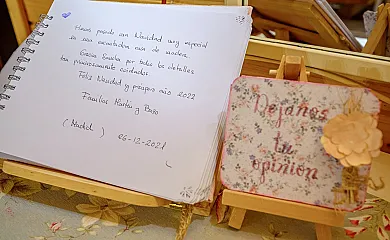 Hemos pasado una Navidad muy especial
en una encantadora casa de madera.
Gracias Emilia por todos los detalles
tan primorosamente cuidados.
Feliz Navidad y prospero año 2022
Familias Martín y Bazo
(Madrid) 26-12-2021
Déjanos
tu
opinion